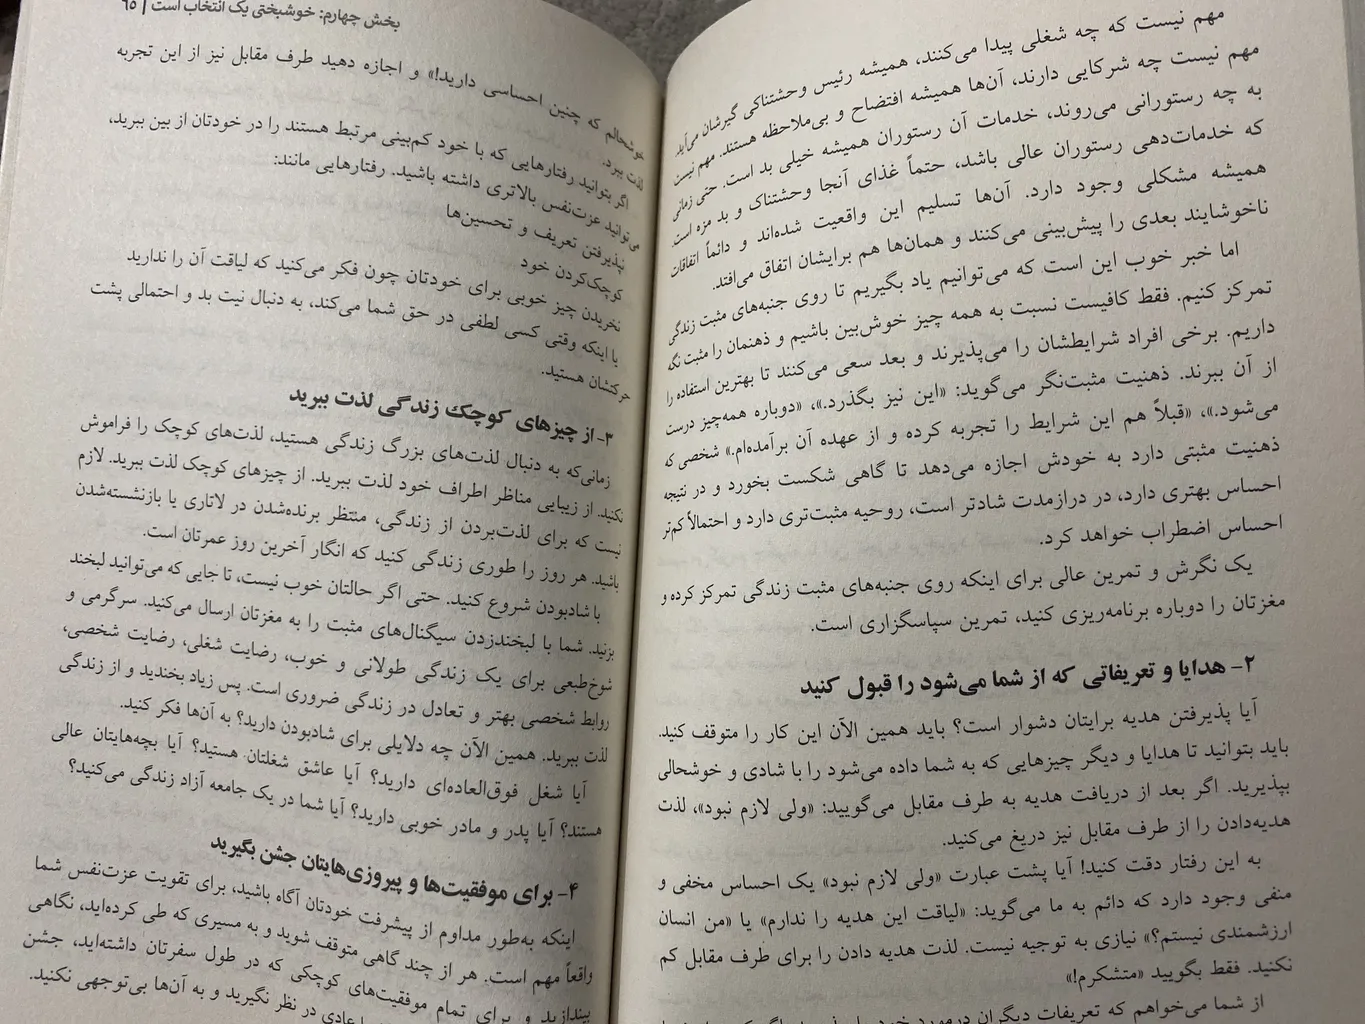 مهم نیست که چه شغلی پیدا می‌کنند، همیشه رئیس وحشتناکی گیرشان می‌آید.
مهم نیست چه شرکایی دارند، آن‌ها همیشه افتضاح و بی‌ملاحظه هستند. مهم نیست
به چه رستورانی می‌روند، خدمات آن رستوران همیشه خیلی بد است. حتی زمانی
که خدمات‌دهی رستوران عالی باشد، حتماً غذای آنجا وحشتناک و بد مزه است.
همیشه مشکلی وجود دارد. آن‌ها تسلیم این واقعیت شده‌اند و دائماً اتفاقات
ناخوشایند بعدی را پیش‌بینی می‌کنند و همان‌ها هم برایشان اتفاق می‌افتد.
اما خبر خوب این است که می‌توانیم یاد بگیریم تا روی جنبه‌های مثبت زندگی
تمرکز کنیم. فقط کافیست نسبت به همه چیز خوش‌بین باشیم و ذهنمان را مثبت نگه
داریم. برخی افراد شرایطشان را می‌پذیرند و بعد سعی می‌کنند تا بهترین استفاده را
از آن ببرند. ذهنیت مثبت‌نگر می‌گوید: «این نیز بگذرد.»، «دوباره همه‌چیز درست
می‌شود.»، «قبلاً هم این شرایط را تجربه کرده و از عهده آن برآمده‌ام.» شخصی که
ذهنیت مثبتی دارد به خودش اجازه می‌دهد تا گاهی شکست بخورد و در نتیجه
احساس بهتری دارد، در درازمدت شادتر است، روحیه مثبت‌تری دارد و احتمالاً کم‌تر
احساس اضطراب خواهد کرد.
یک نگرش و تمرین عالی برای اینکه روی جنبه‌های مثبت زندگی تمرکز کرده و
مغزتان را دوباره برنامه‌ریزی کنید، تمرین سپاسگزاری است.
۲- هدایا و تعریفاتی که از شما می‌شود را قبول کنید
آیا پذیرفتن هدیه برایتان دشوار است؟ باید همین الآن این کار را متوقف کنید.
باید بتوانید تا هدایا و دیگر چیزهایی که به شما داده می‌شود را با شادی و خوشحالی
بپذیرید. اگر بعد از دریافت هدیه به طرف مقابل می‌گویید: «ولی لازم نبود»، لذت
هدیه‌دادن را از طرف مقابل نیز دریغ می‌کنید.
به این رفتار دقت کنید! آیا پشت عبارت «ولی لازم نبود» یک احساس مخفی و
منفی وجود دارد که دائم به ما می‌گوید: «لیاقت این هدیه را ندارم» یا «من انسان
ارزشمندی نیستم؟» نیازی به توجیه نیست. لذت هدیه دادن را برای طرف مقابل کم
نکنید. فقط بگویید «متشکرم!»
از شما می‌خواهم که تعریفات دیگران درمورد
بخش چهارم: خوشبختی یک انتخاب است | ۶۵
خوشحالم که چنین احساسی دارید!» و اجازه دهید طرف مقابل نیز از این تجربه
لذت ببرد.
اگر بتوانید رفتارهایی که با خود کم‌بینی مرتبط هستند را در خودتان از بین ببرید،
می‌توانید عزت‌نفس بالاتری داشته باشید. رفتارهایی مانند:
نپذیرفتن تعریف و تحسین‌ها
کوچک‌کردن خود
نخریدن چیز خوبی برای خودتان چون فکر می‌کنید که لیاقت آن را ندارید
یا اینکه وقتی کسی لطفی در حق شما می‌کند، به دنبال نیت بد و احتمالی پشت
حرکتشان هستید.
۳- از چیزهای کوچک زندگی لذت ببرید
زمانی‌که به دنبال لذت‌های بزرگ زندگی هستید، لذت‌های کوچک را فراموش
نکنید. از زیبایی مناظر اطراف خود لذت ببرید. از چیزهای کوچک لذت ببرید. لازم
نیست که برای لذت‌بردن از زندگی، منتظر برنده‌شدن در لاتاری یا بازنشسته‌شدن
باشید. هر روز را طوری زندگی کنید که انگار آخرین روز عمرتان است.
با شادبودن شروع کنید. حتی اگر حالتان خوب نیست، تا جایی که می‌توانید لبخند
بزنید. شما با لبخندزدن سیگنال‌های مثبت را به مغزتان ارسال می‌کنید. سرگرمی و
شوخ‌طبعی برای یک زندگی طولانی و خوب، رضایت شغلی، رضایت شخصی،
روابط شخصی بهتر و تعادل در زندگی ضروری است. پس زیاد بخندید و از زندگی
لذت ببرید. همین الآن چه دلایلی برای شادبودن دارید؟ به آن‌ها فکر کنید.
آیا شغل فوق‌العاده‌ای دارید؟ آیا عاشق شغلتان هستید؟ آیا بچه‌هایتان عالی
هستند؟ آیا پدر و مادر خوبی دارید؟ آیا شما در یک جامعه آزاد زندگی می‌کنید؟
۴- برای موفقیت‌ها و پیروزی‌هایتان جشن بگیرید
اینکه به‌طور مداوم از پیشرفت خودتان آگاه باشید، برای تقویت عزت‌نفس شما
واقعاً مهم است. هر از چند گاهی متوقف شوید و به مسیری که طی کرده‌اید، نگاهی
بیندازید و برای تمام موفقیت‌های کوچکی که در طول سفرتان داشته‌اید، جشن
عادی در نظر نگیرید و به آن‌ها بی‌توجهی نکنید.